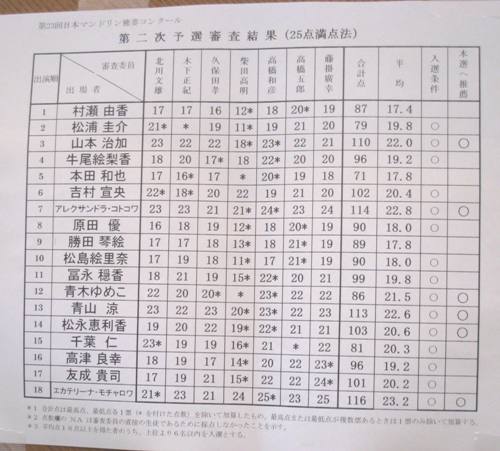 第23回日本マンドリン独奏コンクール
第二次予選審査結果(25点満点法)
出演順 審査委員 出場者 北川文雄 木下正紀 久保田孝 柴田高明 高橋和彦 高橋五郎 藤掛廣幸 合計点 平均 入選条件 本選へ推薦
1 村瀬 由香 17 17 16 12* 18 20* 19 87 17.4
2 松浦 圭介 21* * 19 11* 19 21 20 79 19.8 ○
3 山本 治加 23 22 22 18* 23* 22 21 110 22.0 ○ ○
4 牛尾絵梨香 18 20 17* 18 22* 20 20 96 19.2 ○
5 本田 和也 17 16* 17 * 20* 19 18 71 17.8
6 吉村 宣央 22* 18* 20 22 19 21 20 102 20.4 ○
7 アレクサンドラ・コトコワ 23 23 21 21* 24* 23 24 114 22.8 ○ ○
8 原田 優 16 18 19 12* 18 20* 19 90 18.0 ○
9 勝田 琴絵 17 17 18 13* 18 21* 19 89 17.8
10 松島絵里奈 17 19 18 11* 17 21* 19 90 18.0 ○
11 冨永 穏香 18 21 19 15* 22* 20 21 99 19.8 ○
12 青木ゆめこ 22 20 20* * 23* 22 22 86 21.5 ○ ○
13 青山 涼 23 22 23 20* 23* 22 23 113 22.6 ○ ○
14 松永恵利香 19 20 22 19* 22* 21 21 103 20.6 ○ ○
15 千葉 仁 23* 19 19 16* 21 * 22 81 20.3 ○
16 高津 良幸 18 19 17 14* 20 22 23* 96 19.2 ○
17 友成 貴司 17 19 21 15* 22 22 24* 101 20.2 ○
18 エカテリーナ・モチャロワ 21* 23 24 24 25* 23 22 116 23.2 ○ ○
*1 合計点は最高点、最低点各1票(*を付けた点数)を除いて加算したもの、最高点または最低点が複数票あるときは1票のみ除いて加算する。
*2 点数欄のNAは審査委員の直接の生徒であるために採点しなかったことを示す。
*3 平均点18点以上を得た者のうち、上位より6名以内を入選とする。